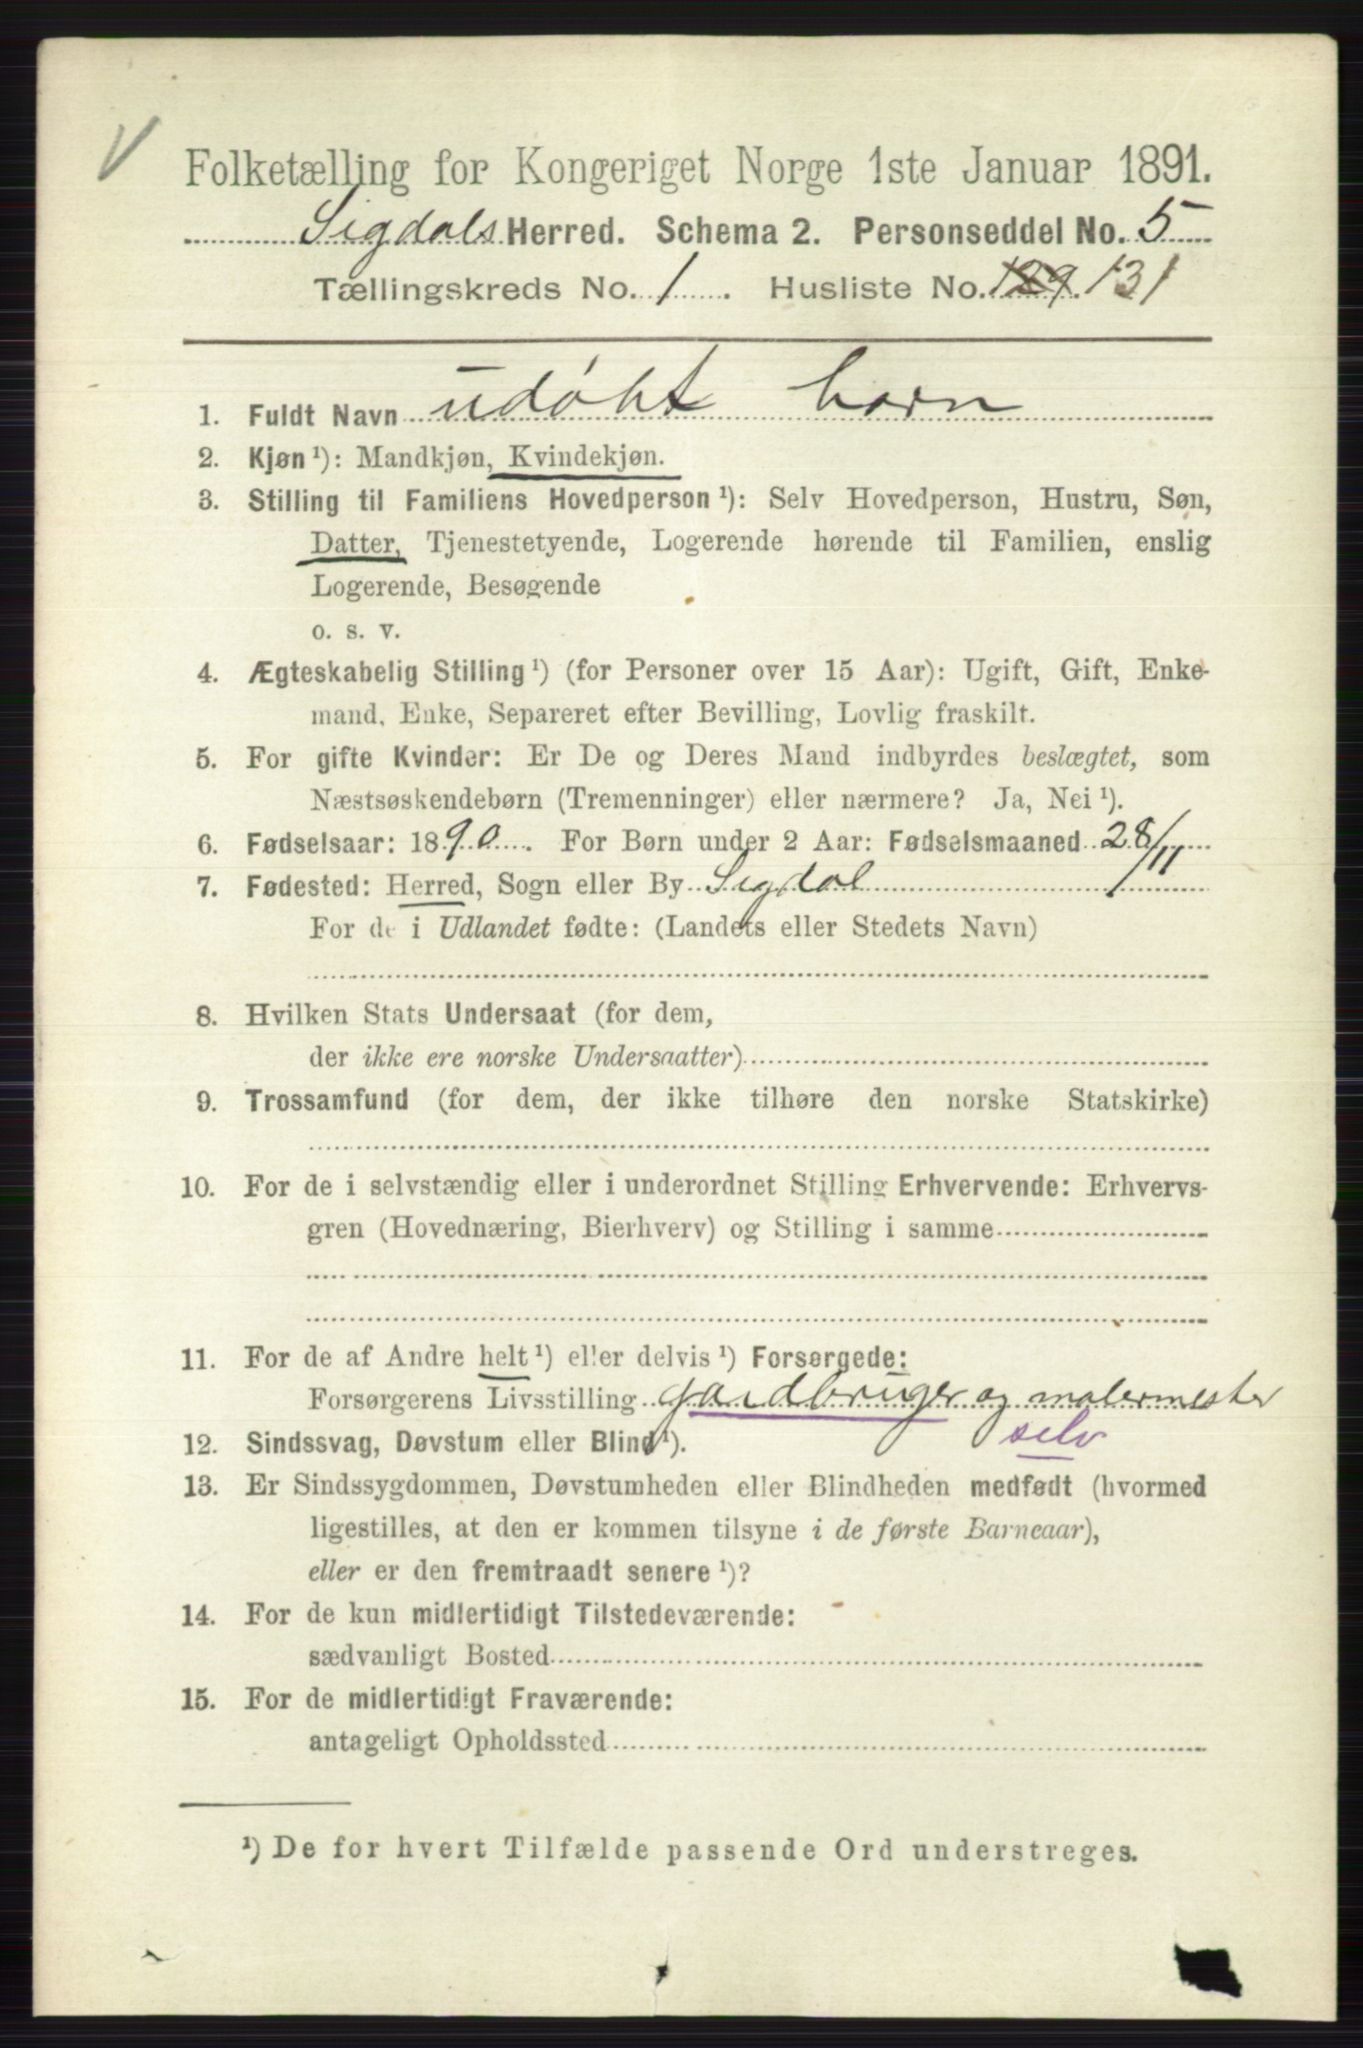 V
Folketælling for Kongeriget Norge 1ste Januar 1891.
Sigdals Herred. Schema 2. Personseddel No. 5
Tællingskreds No. 1. Husliste No. 129 131
1. Fuldt Navn udøbt barn
2. Kjøn ¹): Mandkjøn, Kvindekjøn.
3. Stilling til Familiens Hovedperson ¹): Selv Hovedperson, Hustru, Søn,
Datter, Tjenestetyende, Logerende hørende til Familien, enslig
Logerende, Besøgende
o. s. v.
4. Ægteskabelig Stilling ¹) (for Personer over 15 Aar): Ugift, Gift, Enke-
mand, Enke, Separeret efter Bevilling, Lovlig fraskilt.
5. For gifte Kvinder: Er De og Deres Mand indbyrdes beslægtet, som
Næstsøskendebørn (Tremenninger) eller nærmere? Ja, Nei ¹).
6. Fødselsaar: 1890. For Børn under 2 Aar: Fødselsmaaned 28/11
7. Fødested: Herred, Sogn eller By Sigdal
For de i Udlandet fødte: (Landets eller Stedets Navn)
8. Hvilken Stats Undersaat (for dem,
der ikke ere norske Undersaatter)
9. Trossamfund (for dem, der ikke tilhøre den norske Statskirke)
10. For de i selvstændig eller i underordnet Stilling Erhvervende: Erhvervs-
gren (Hovednæring, Bierhverv) og Stilling i samme
11. For de af Andre helt ¹) eller delvis ¹) Forsørgede:
Forsørgerens Livsstilling gaardbruger og malermester
selv
12. Sindssvag, Døvstum eller Blind ¹).
13. Er Sindssygdommen, Døvstumheden eller Blindheden medfødt (hvormed
ligestilles, at den er kommen tilsyne i de første Barneaar),
eller er den fremtraadt senere ¹)?
14. For de kun midlertidigt Tilstedeværende:
sædvanligt Bosted
15. For de midlertidigt Fraværende:
antageligt Opholdssted
¹) De for hvert Tilfælde passende Ord understreges.